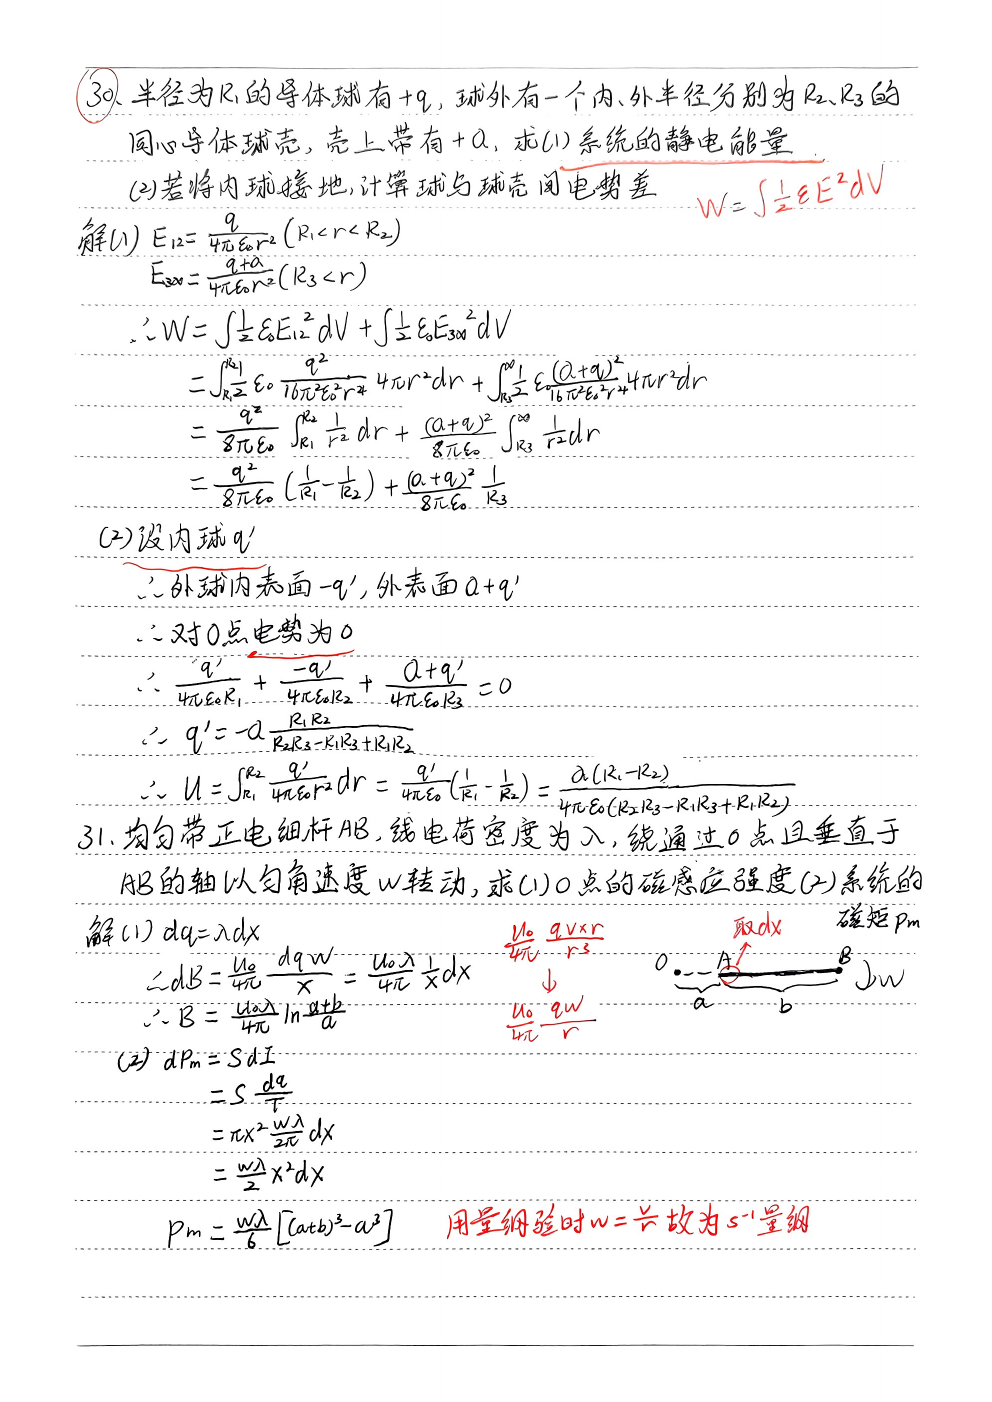 30、半径为R₁的导体球有+q，球外有一个内、外半径分别为R₂、R₃的
同心导体球壳，壳上带有+Q，求(1)系统的静电能量
(2)若将内球接地，计算球与球壳间电势差
W=∫½εE²dV
解(1) E₁₂= q/4πε₀r² (R₁<r<R₂)
E₃∞= q+Q/4πε₀r² (R₃<r)
∴W=∫½ε₀E₁₂²dV+∫½ε₀E₃∞²dV
=∫_{R₁}^{R₂} ½ε₀ q²/16π²ε₀²r⁴ 4πr²dr + ∫_{R₃}^{∞} ½ε₀ (Q+q)²/16π²ε₀²r⁴ 4πr²dr
= q²/8πε₀ ∫_{R₁}^{R₂} 1/r² dr + (Q+q)²/8πε₀ ∫_{R₃}^{∞} 1/r² dr
= q²/8πε₀ (1/R₁ - 1/R₂) + (Q+q)²/8πε₀ 1/R₃
(2)设内球q'
∴外球内表面-q'，外表面Q+q'
∴对O点电势为0
∴ q'/4πε₀R₁ + -q'/4πε₀R₂ + Q+q'/4πε₀R₃ =0
∴ q'=-Q R₁R₂/R₂R₃-R₁R₃+R₁R₂
∴ U=∫_{R₁}^{R₂} q'/4πε₀r² dr = q'/4πε₀ (1/R₁ - 1/R₂) = Q(R₁-R₂)/4πε₀(R₂R₃-R₁R₃+R₁R₂)
31、均匀带正电细杆AB，线电荷密度为λ，绕通过O点且垂直于
AB的轴以匀角速度w转动，求(1)O点的磁感应强度(2)系统的
磁矩Pm
解(1) dq=λdx
∴dB= u₀/4π dqw/x = u₀λ/4π 1/x dx
∴B= u₀wλ/4π ln a+b/a
u₀/4π qv×r/r³
↓
u₀/4π qw/r
取dx
O A B w
a b
(2) dPm=SdI
=S dq/T
=πx² wλ/2π dx
= wλ/2 x²dx
Pm= wλ/6 [(a+b)³-a³]
用量纲验时w=v/r 故为s⁻¹量纲